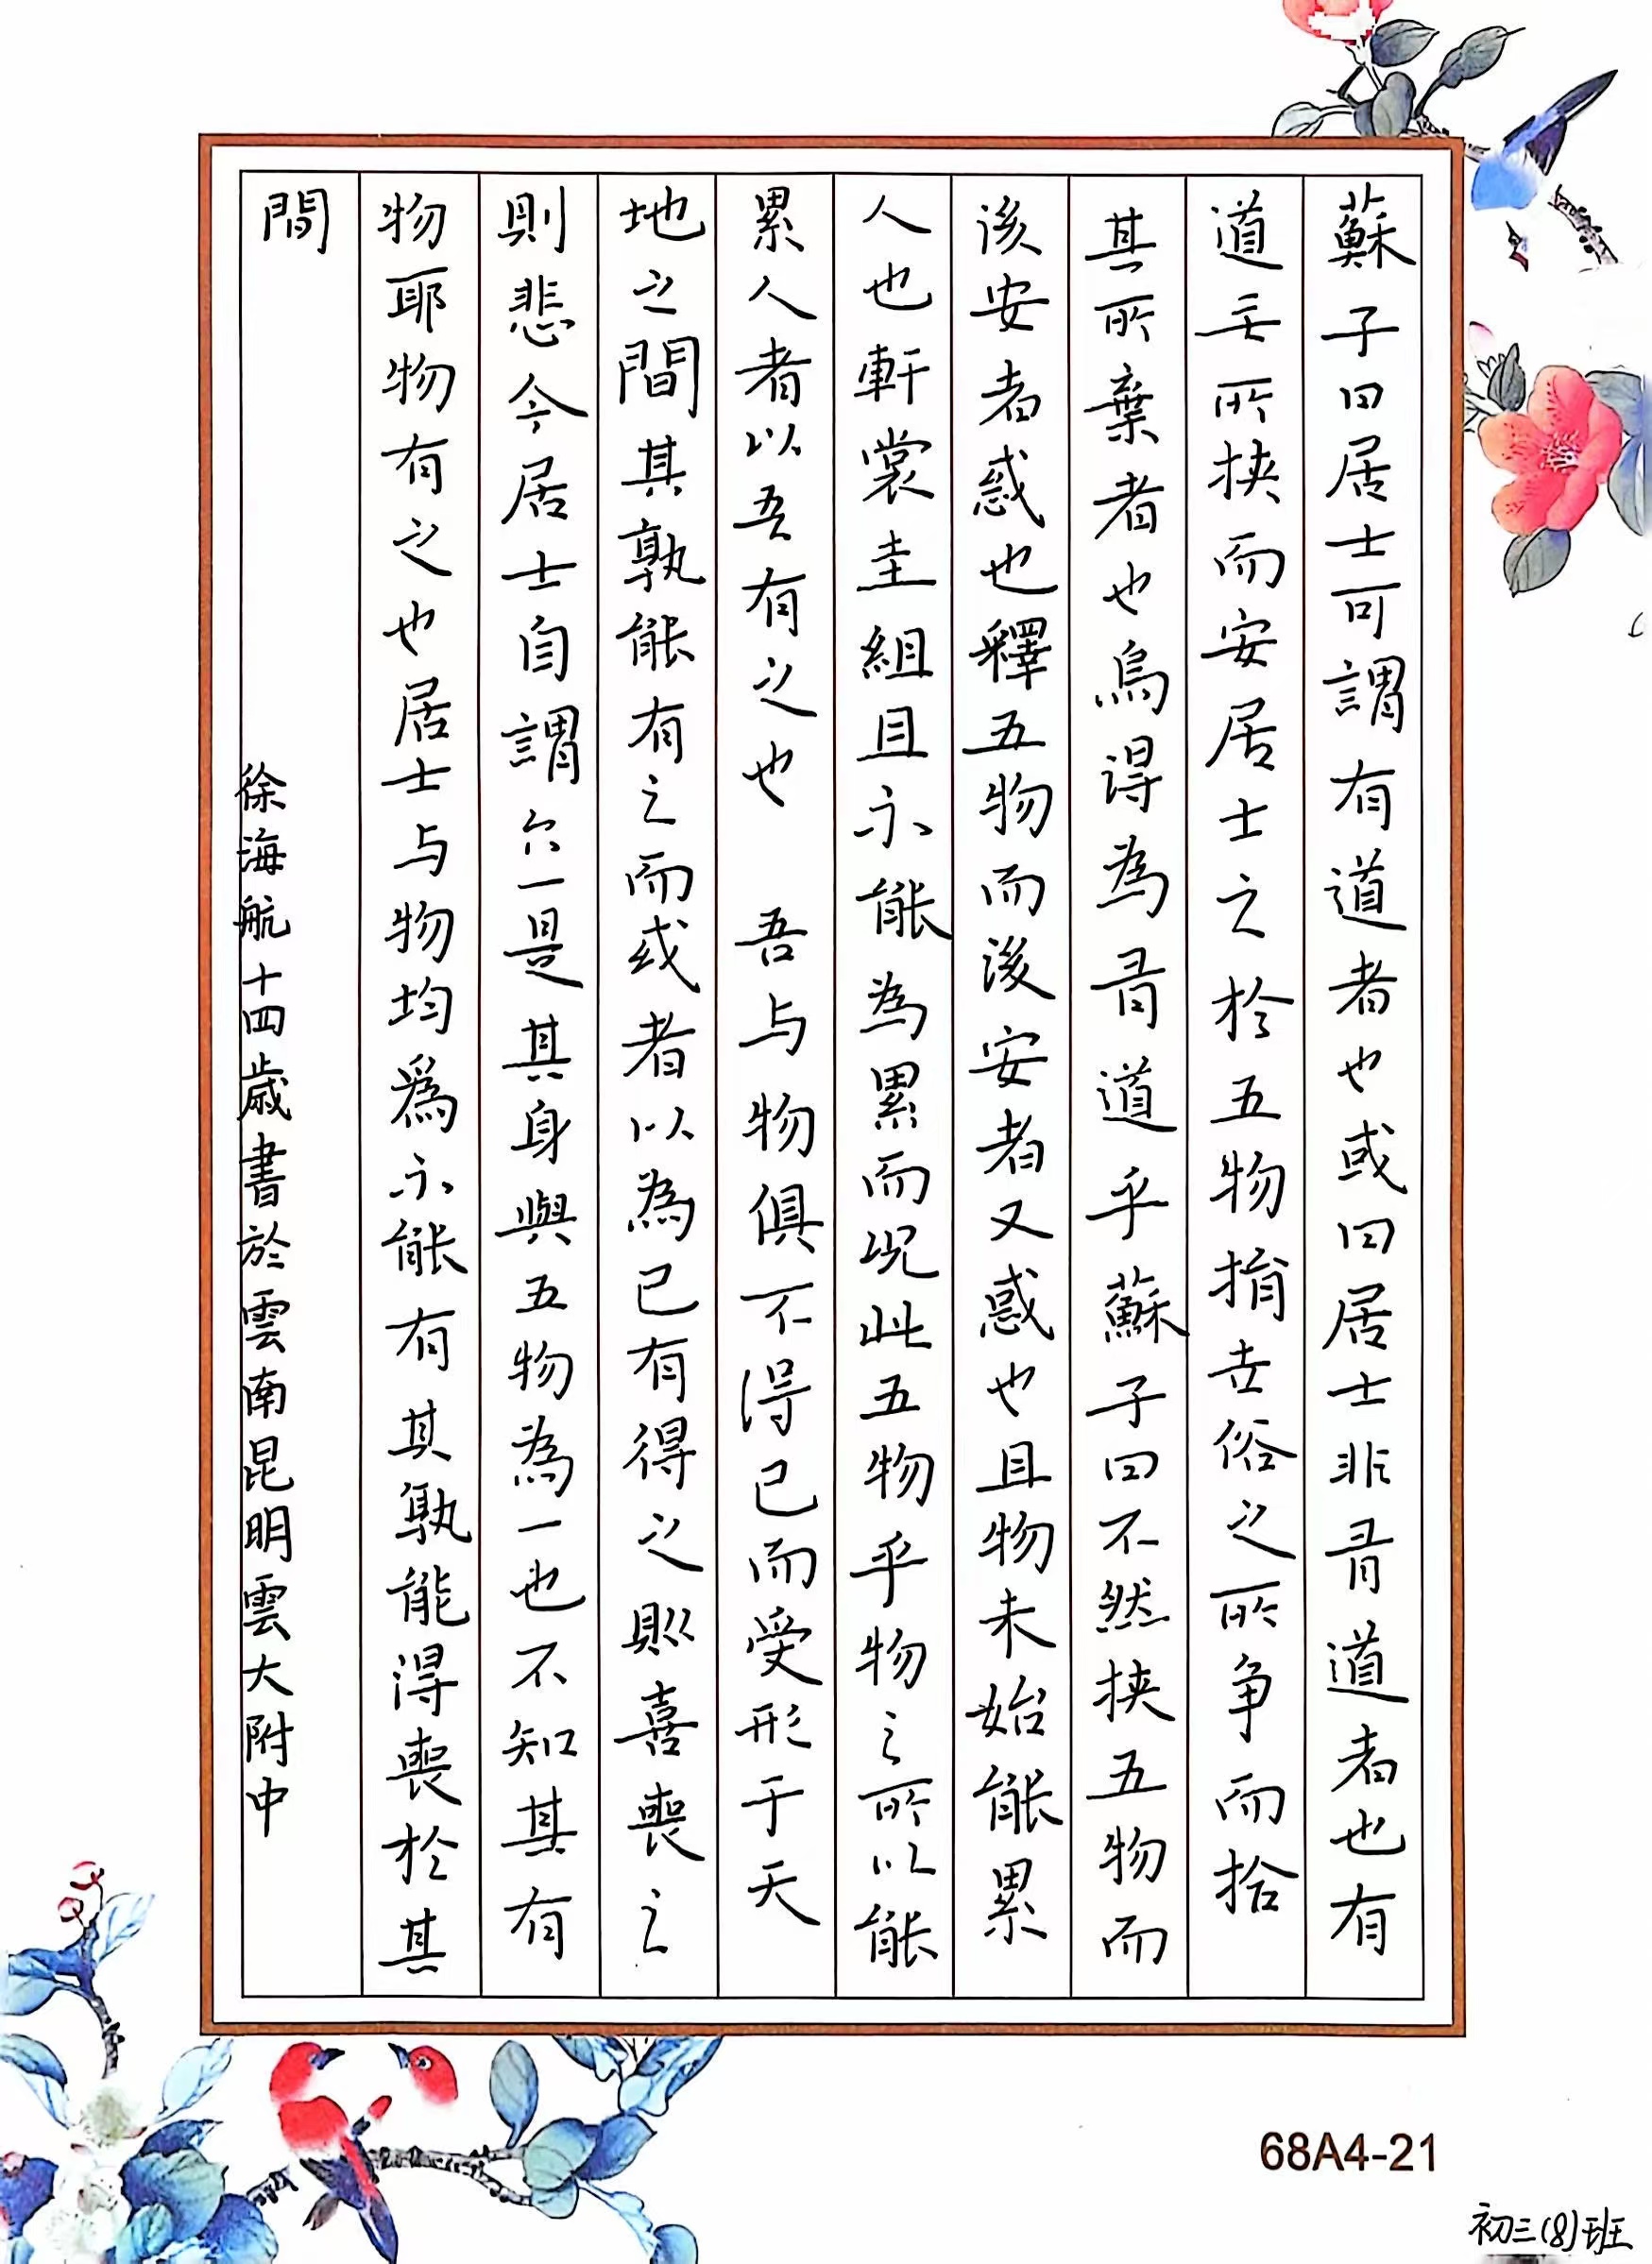 蘇子曰居士可謂有道者也或曰居士非有道者也有
道無所挾而安居士之於五物捐世俗之所争而拾
其所棄者也烏得為有道乎蘇子曰不然挾五物而
後安者惑也釋五物而後安者又惑也且物未始能累
人也軒裳圭組且不能為累而況此五物乎物之所以能
累人者以吾有之也 吾与物俱不得已而受形于天
地之間其孰能有之而或者以為已有得之則喜喪之
則悲今居士自謂六一是其身與五物為一也不知其有
物耶物有之也居士与物均爲不能有其孰能得喪於其
間
徐海航十四歲書於雲南昆明雲大附中
68A4-21
初三(8)班